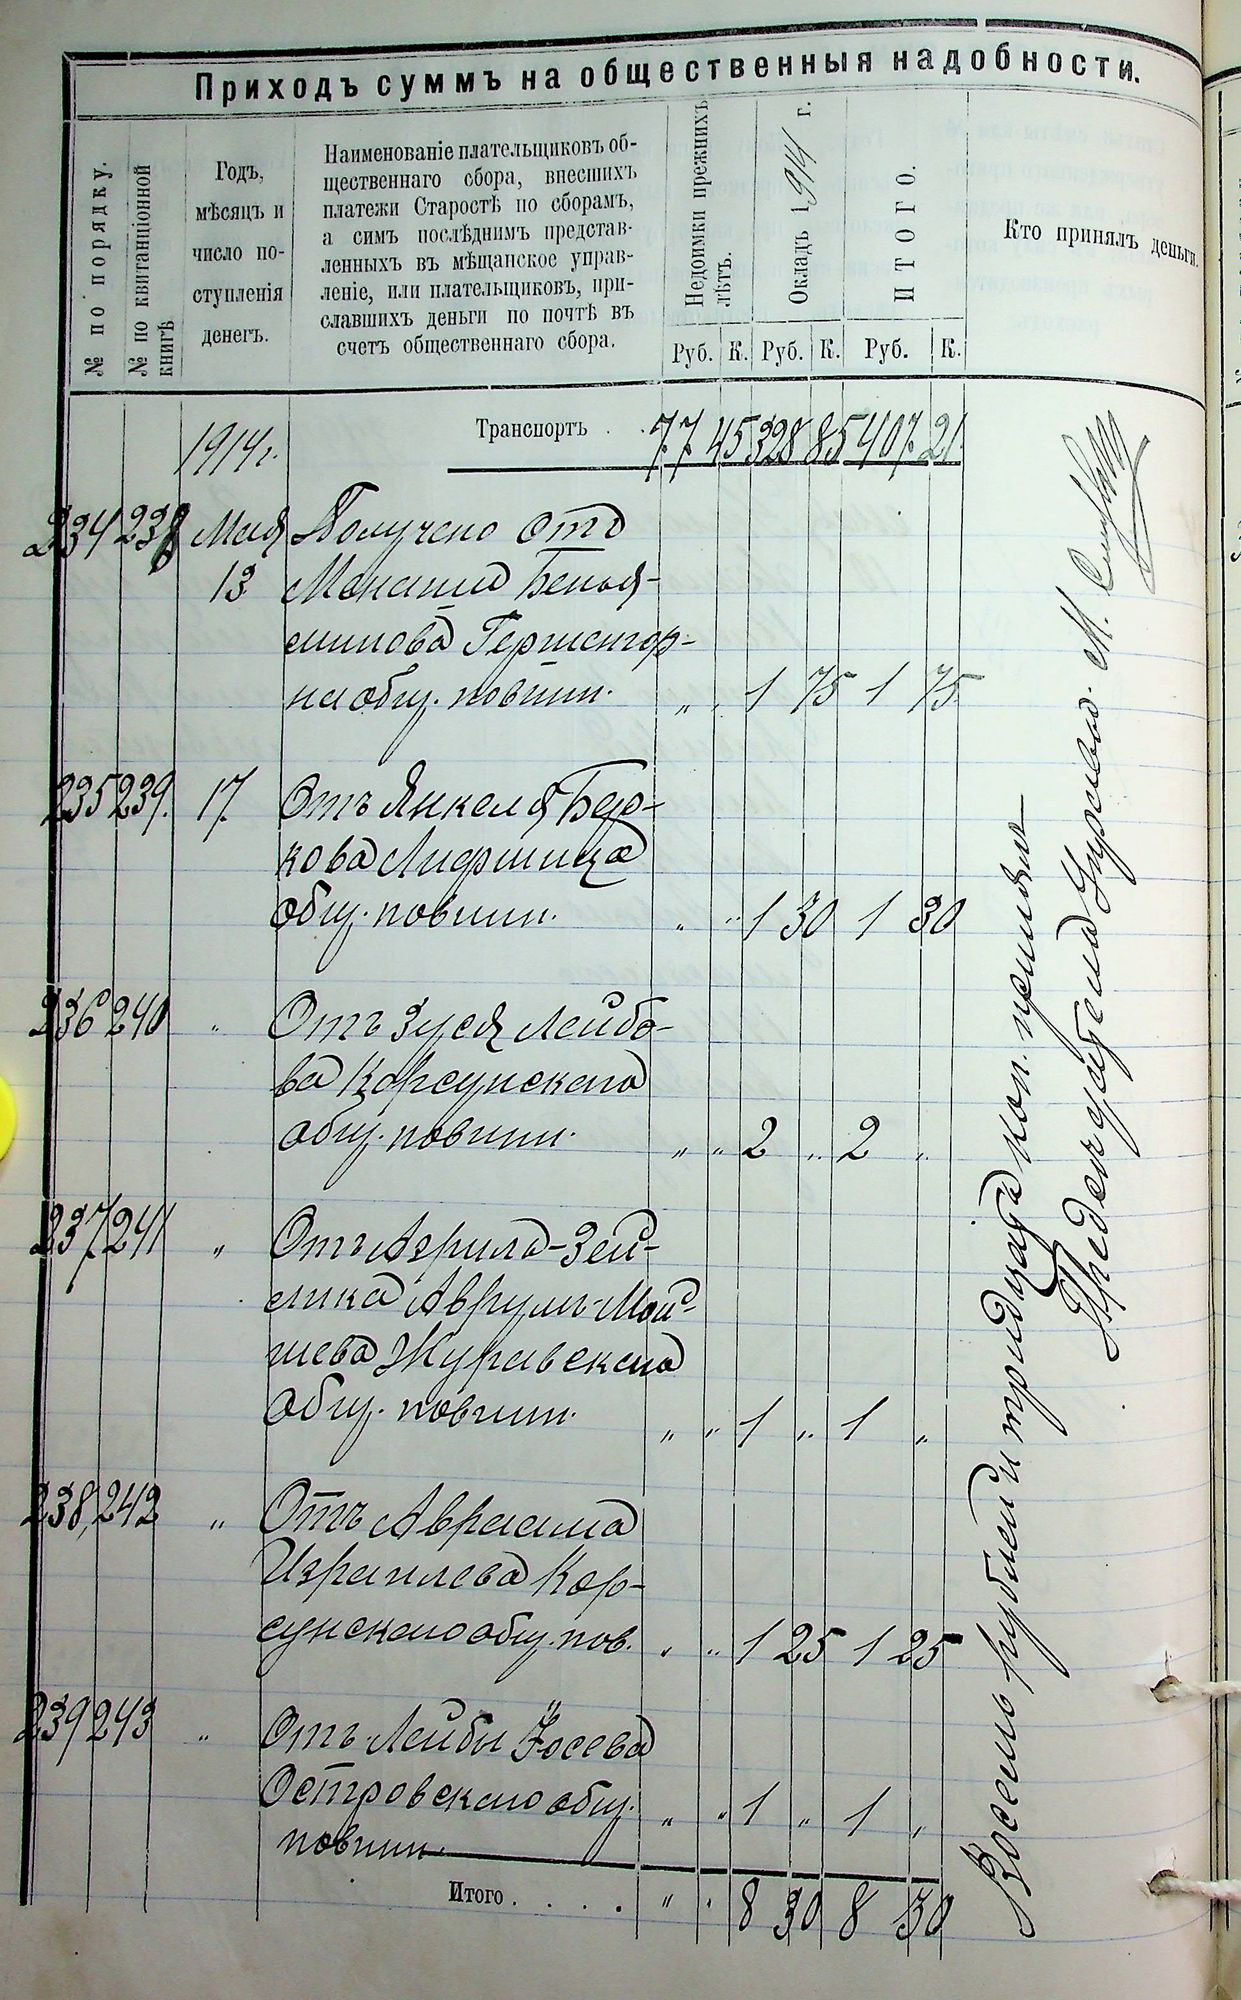 Приходъ суммъ на общественныя надобности.
№ по порядку.
№ по квитанціонной
книгѣ
Годъ,
мѣсяцъ и
число по-
ступленія
денегъ.
Наименованіе плательщиковъ об-
щественнаго сбора, внесшихъ
платежи Старостѣ по сборамъ,
а симъ послѣднимъ представ-
ленныхъ въ мѣщанское управ-
леніе, или плательщиковъ, при-
славшихъ деньги по почтѣ въ
счетъ общественнаго сбора.
Недоимки прежнихъ
лѣтъ.
Окладъ 1914 г.
ИТОГО.
Руб. К. Руб. К. Руб. К.
Кто принялъ деньги.
1914 г. Транспортъ . . 77 45 328 85 407 21
234 238 Мая Получено отъ
13 Монаша Бенья-
минова Гершенгор-
на общ. повин. " " 1 75 1 75
235 239. 17. Отъ Янкеля Бер-
кова Лифшица
общ. повин. " " 1 30 1 30
236 240 " Отъ Зуся Лейбо-
ва Корсунскаго
общ. повин. " " 2 " 2 "
237 241 " Отъ Азрила-Зей-
лика Аврум-Мой-
шева Журавскаго
общ. повин. " " 1 " 1 "
238, 242 " Отъ Авраама
Израилева Кор-
сунскаго общ. пов. " " 1 25 1 25
239 243 " Отъ Лейбы Іосева
Островскаго общ. " " 1 " 1 "
повин.
Итого . . . . " " 8 30 8 30
Восемь рублей и тридцать коп. принялъ
Предсѣд Управы М.